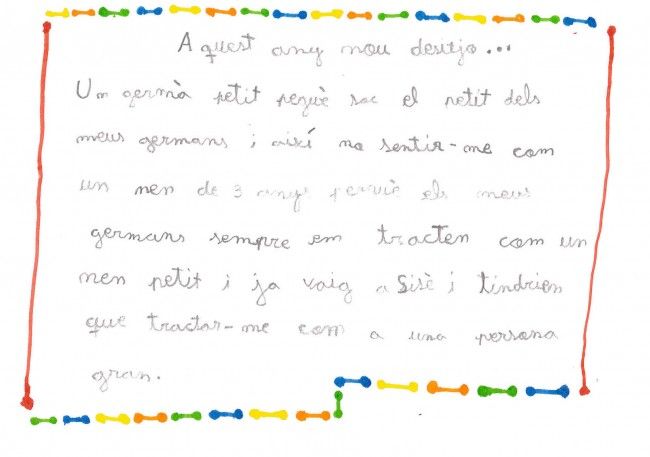 Aquest any nou desitjo...
Un germà petit perquè soc el petit dels
meus germans i així no sentir-me com
un nen de 3 anys perquè els meus
germans sempre em tracten com un
nen petit i ja vaig a Sisè i tindrien
que tractar-me com a una persona
gran.